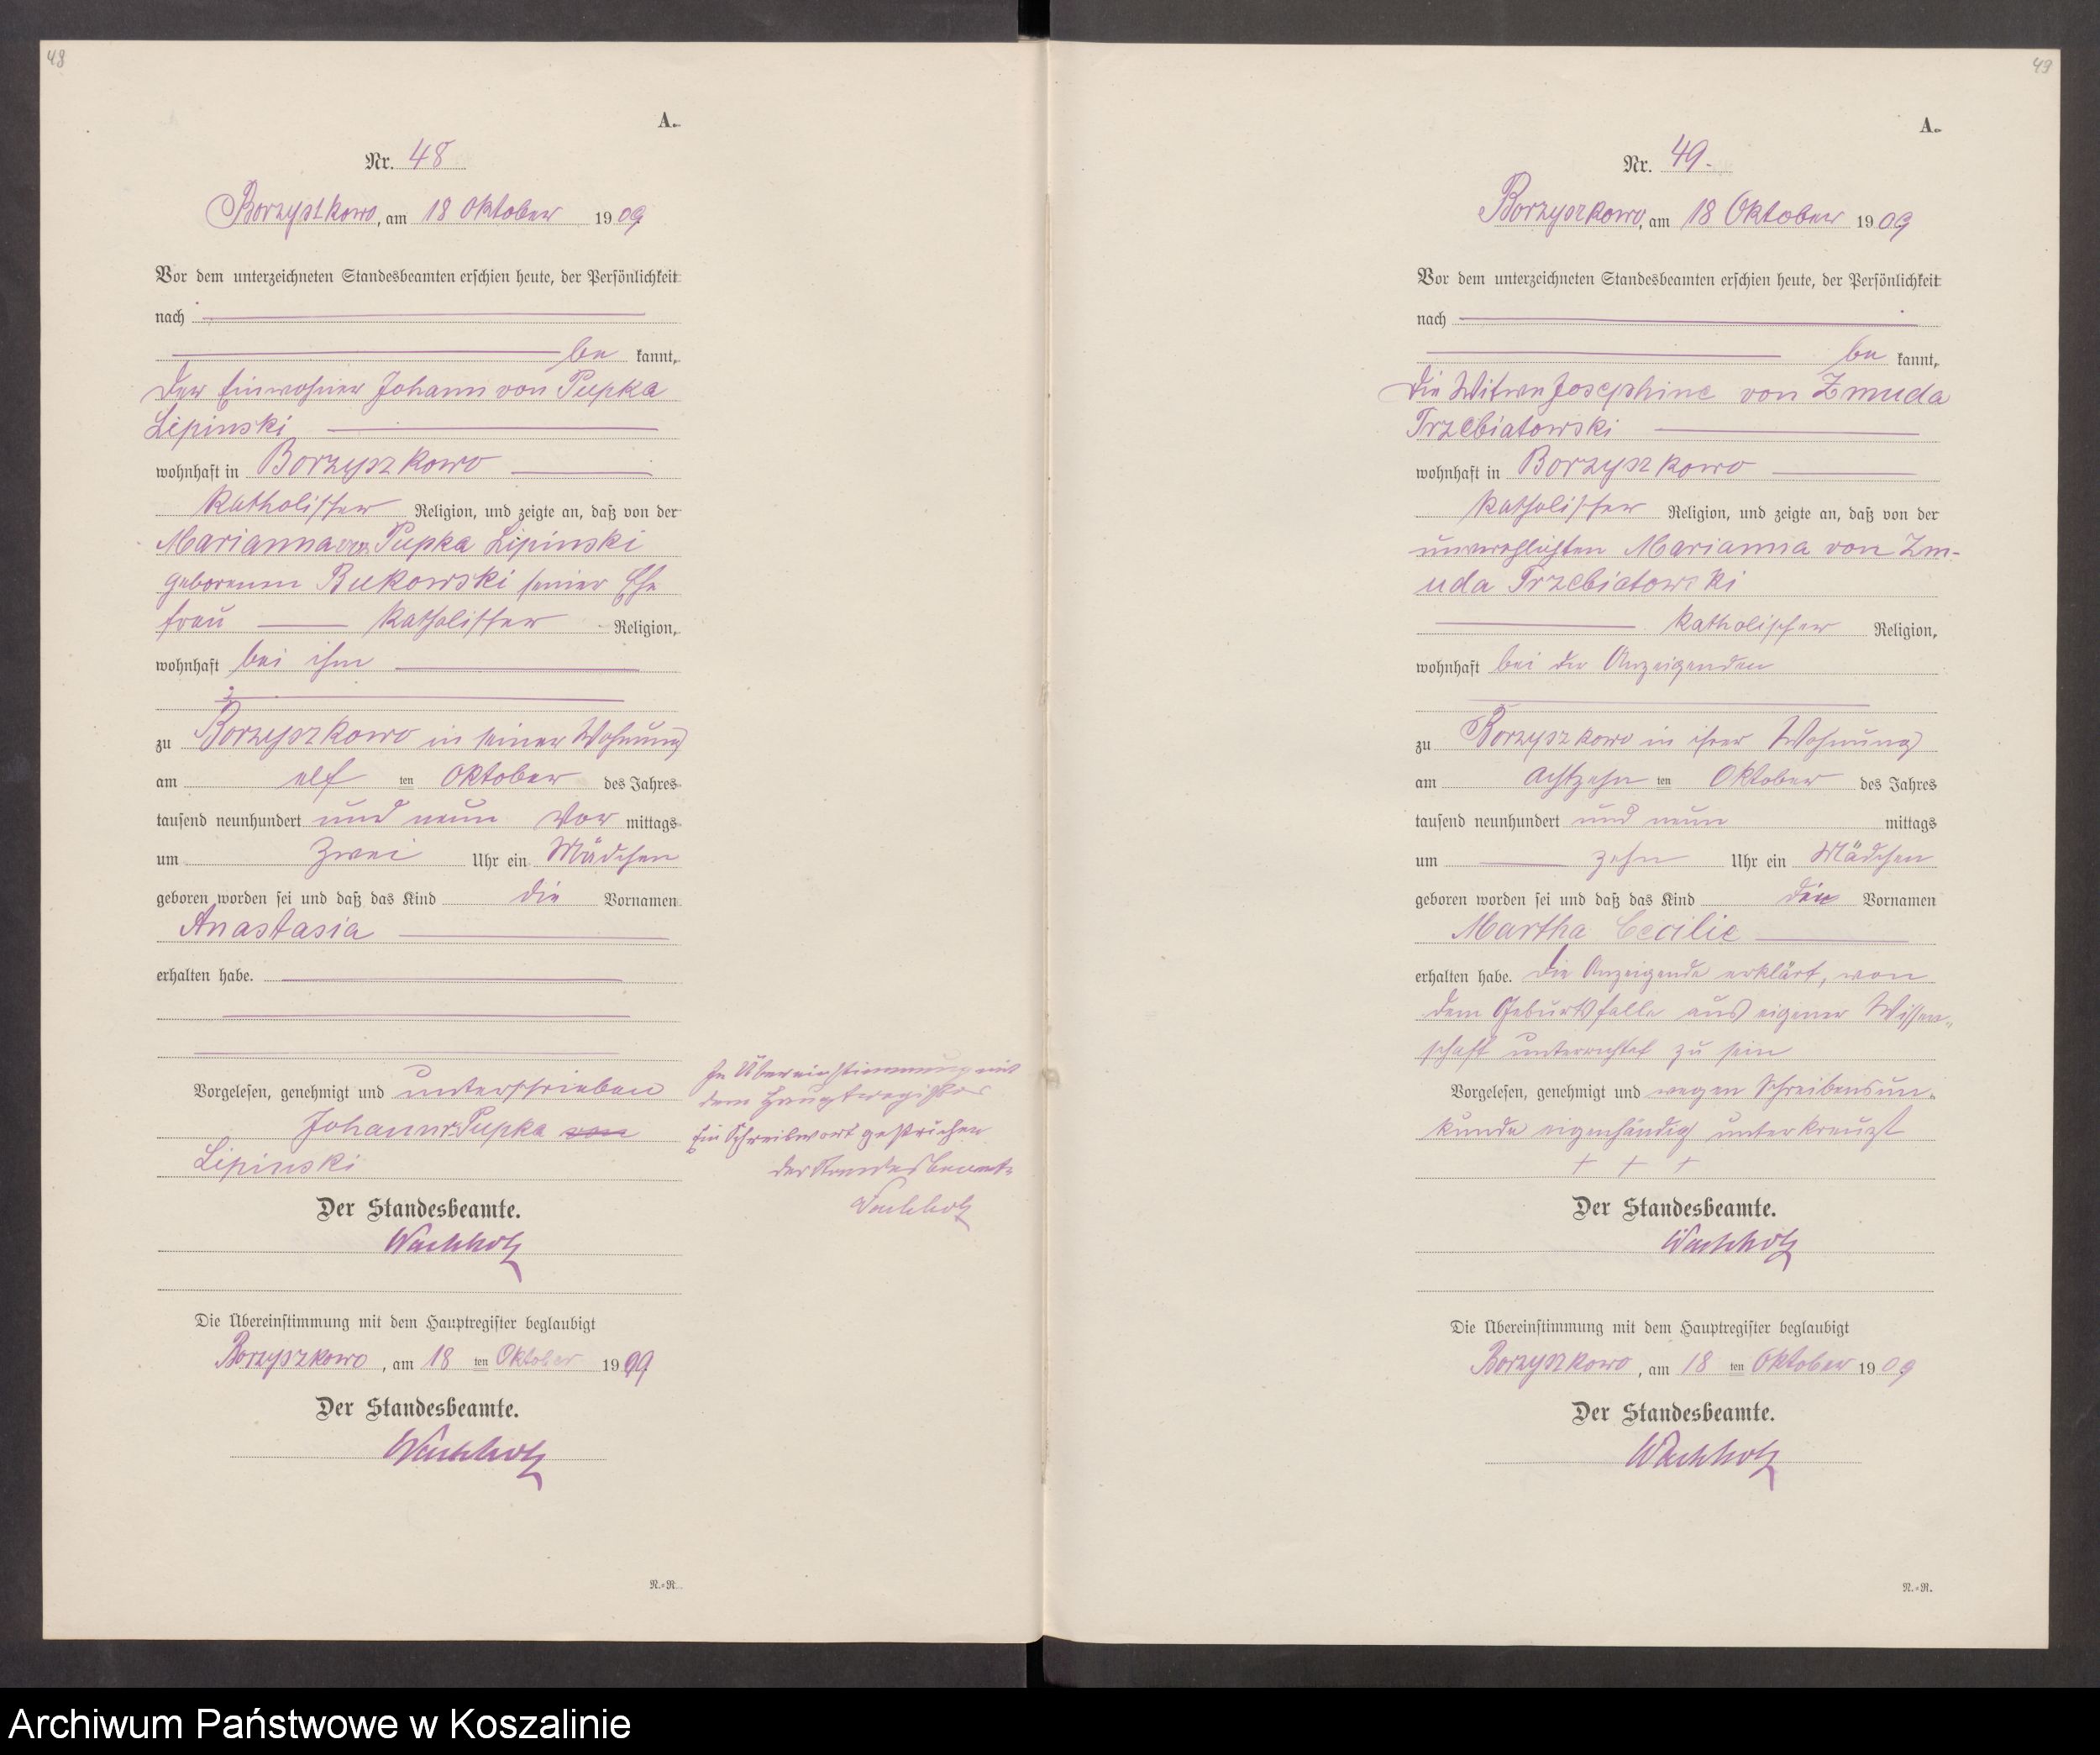 48
A.
Nr. 48
Borzyszkowo, am 18 Oktober 1909.
Vor dem unterzeichneten Standesbeamten erschien heute, der Persönlichkeit
nach
be kannt,
der Einwohner Johann von Pupka
Lipinski
wohnhaft in Borzyszkowo
katholischer Religion, und zeigte an, daß von der
Marianna von Pupka Lipinski
geborenen Bukowski seiner Ehe
frau katholischer Religion,
wohnhaft bei ihm
zu Borzyszkowo in seiner Wohnung
am elf ten Oktober des Jahres
tausend neunhundert und neun Vor mittags
um zwei Uhr ein Mädchen
geboren worden sei und daß das Kind die Vornamen
Anastasia
erhalten habe.
Vorgelesen, genehmigt und unterschrieben
Johann v. Pupka von
Lipinski
Der Standesbeamte.
Wachholz
Die Übereinstimmung mit dem Hauptregister beglaubigt
Borzyszkowo, am 18 ten Oktober 1909.
Der Standesbeamte.
Wachholz
N.=R.
In Übereinstimmung mit
dem Hauptregister
Ein Schreibwort gestrichen
Der Standesbeamte
Wachholz
49
A.
Nr. 49.
Borzyszkowo, am 18 Oktober 1909
Vor dem unterzeichneten Standesbeamten erschien heute, der Persönlichkeit
nach
be kannt,
die Witwe Josephine von Zmuda
Trzebiatowski
wohnhaft in Borzyszkowo
katholischer Religion, und zeigte an, daß von der
unverehlichten Marianna von Zm-
uda Trzebiatowski
katholischer Religion,
wohnhaft bei der Anzeigenden
zu Borzyszkowo in ihrer Wohnung
am achtzehn ten Oktober des Jahres
tausend neunhundert und neun mittags
um zehn Uhr ein Mädchen
geboren worden sei und daß das Kind die Vornamen
Martha Cecilie
erhalten habe. Die Anzeigende erklärt, von
dem Geburtsfalle aus eigener Wissen-
schaft unterrichtet zu sein
Vorgelesen, genehmigt und wegen Schreibensun-
kunde eigenhändig unterkreuzt
+ + +
Der Standesbeamte.
Wachholz
Die Übereinstimmung mit dem Hauptregister beglaubigt
Borzyszkowo, am 18 ten Oktober 1909
Der Standesbeamte.
Wachholz
N.=R.
Archiwum Państwowe w Koszalinie